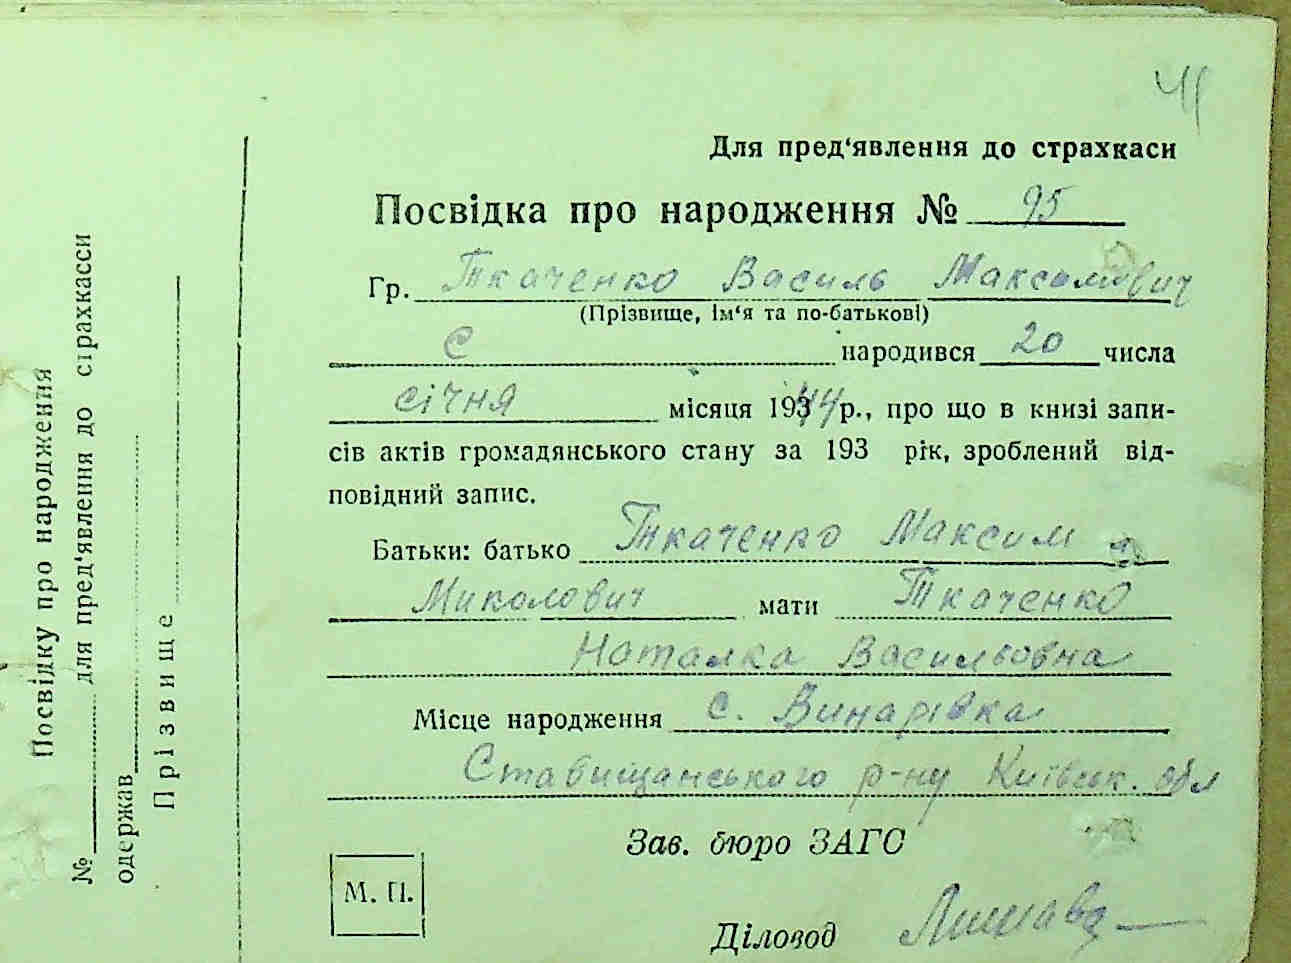 41
Для пред‘явлення до страхкаси
Посвідка про народження № 95
Гр. Ткаченко Василь Максимович
(Прізвище, ім‘я та по-батькові)
С народився 20 числа
січня місяця 1944 р., про що в книзі запи-
сів актів громадянського стану за 193 рік, зроблений від-
повідний запис.
Батьки: батько Ткаченко Максим
Миколович мати Ткаченко
Наталка Васильовна
Місце народження с. Винарівка
Ставищанського р-ну Київськ. обл
Зав. бюро ЗАГС
М. П.
Діловод
Посвідку про народження
№ для пред‘явлення до страхкасси
одержав
Прізвище